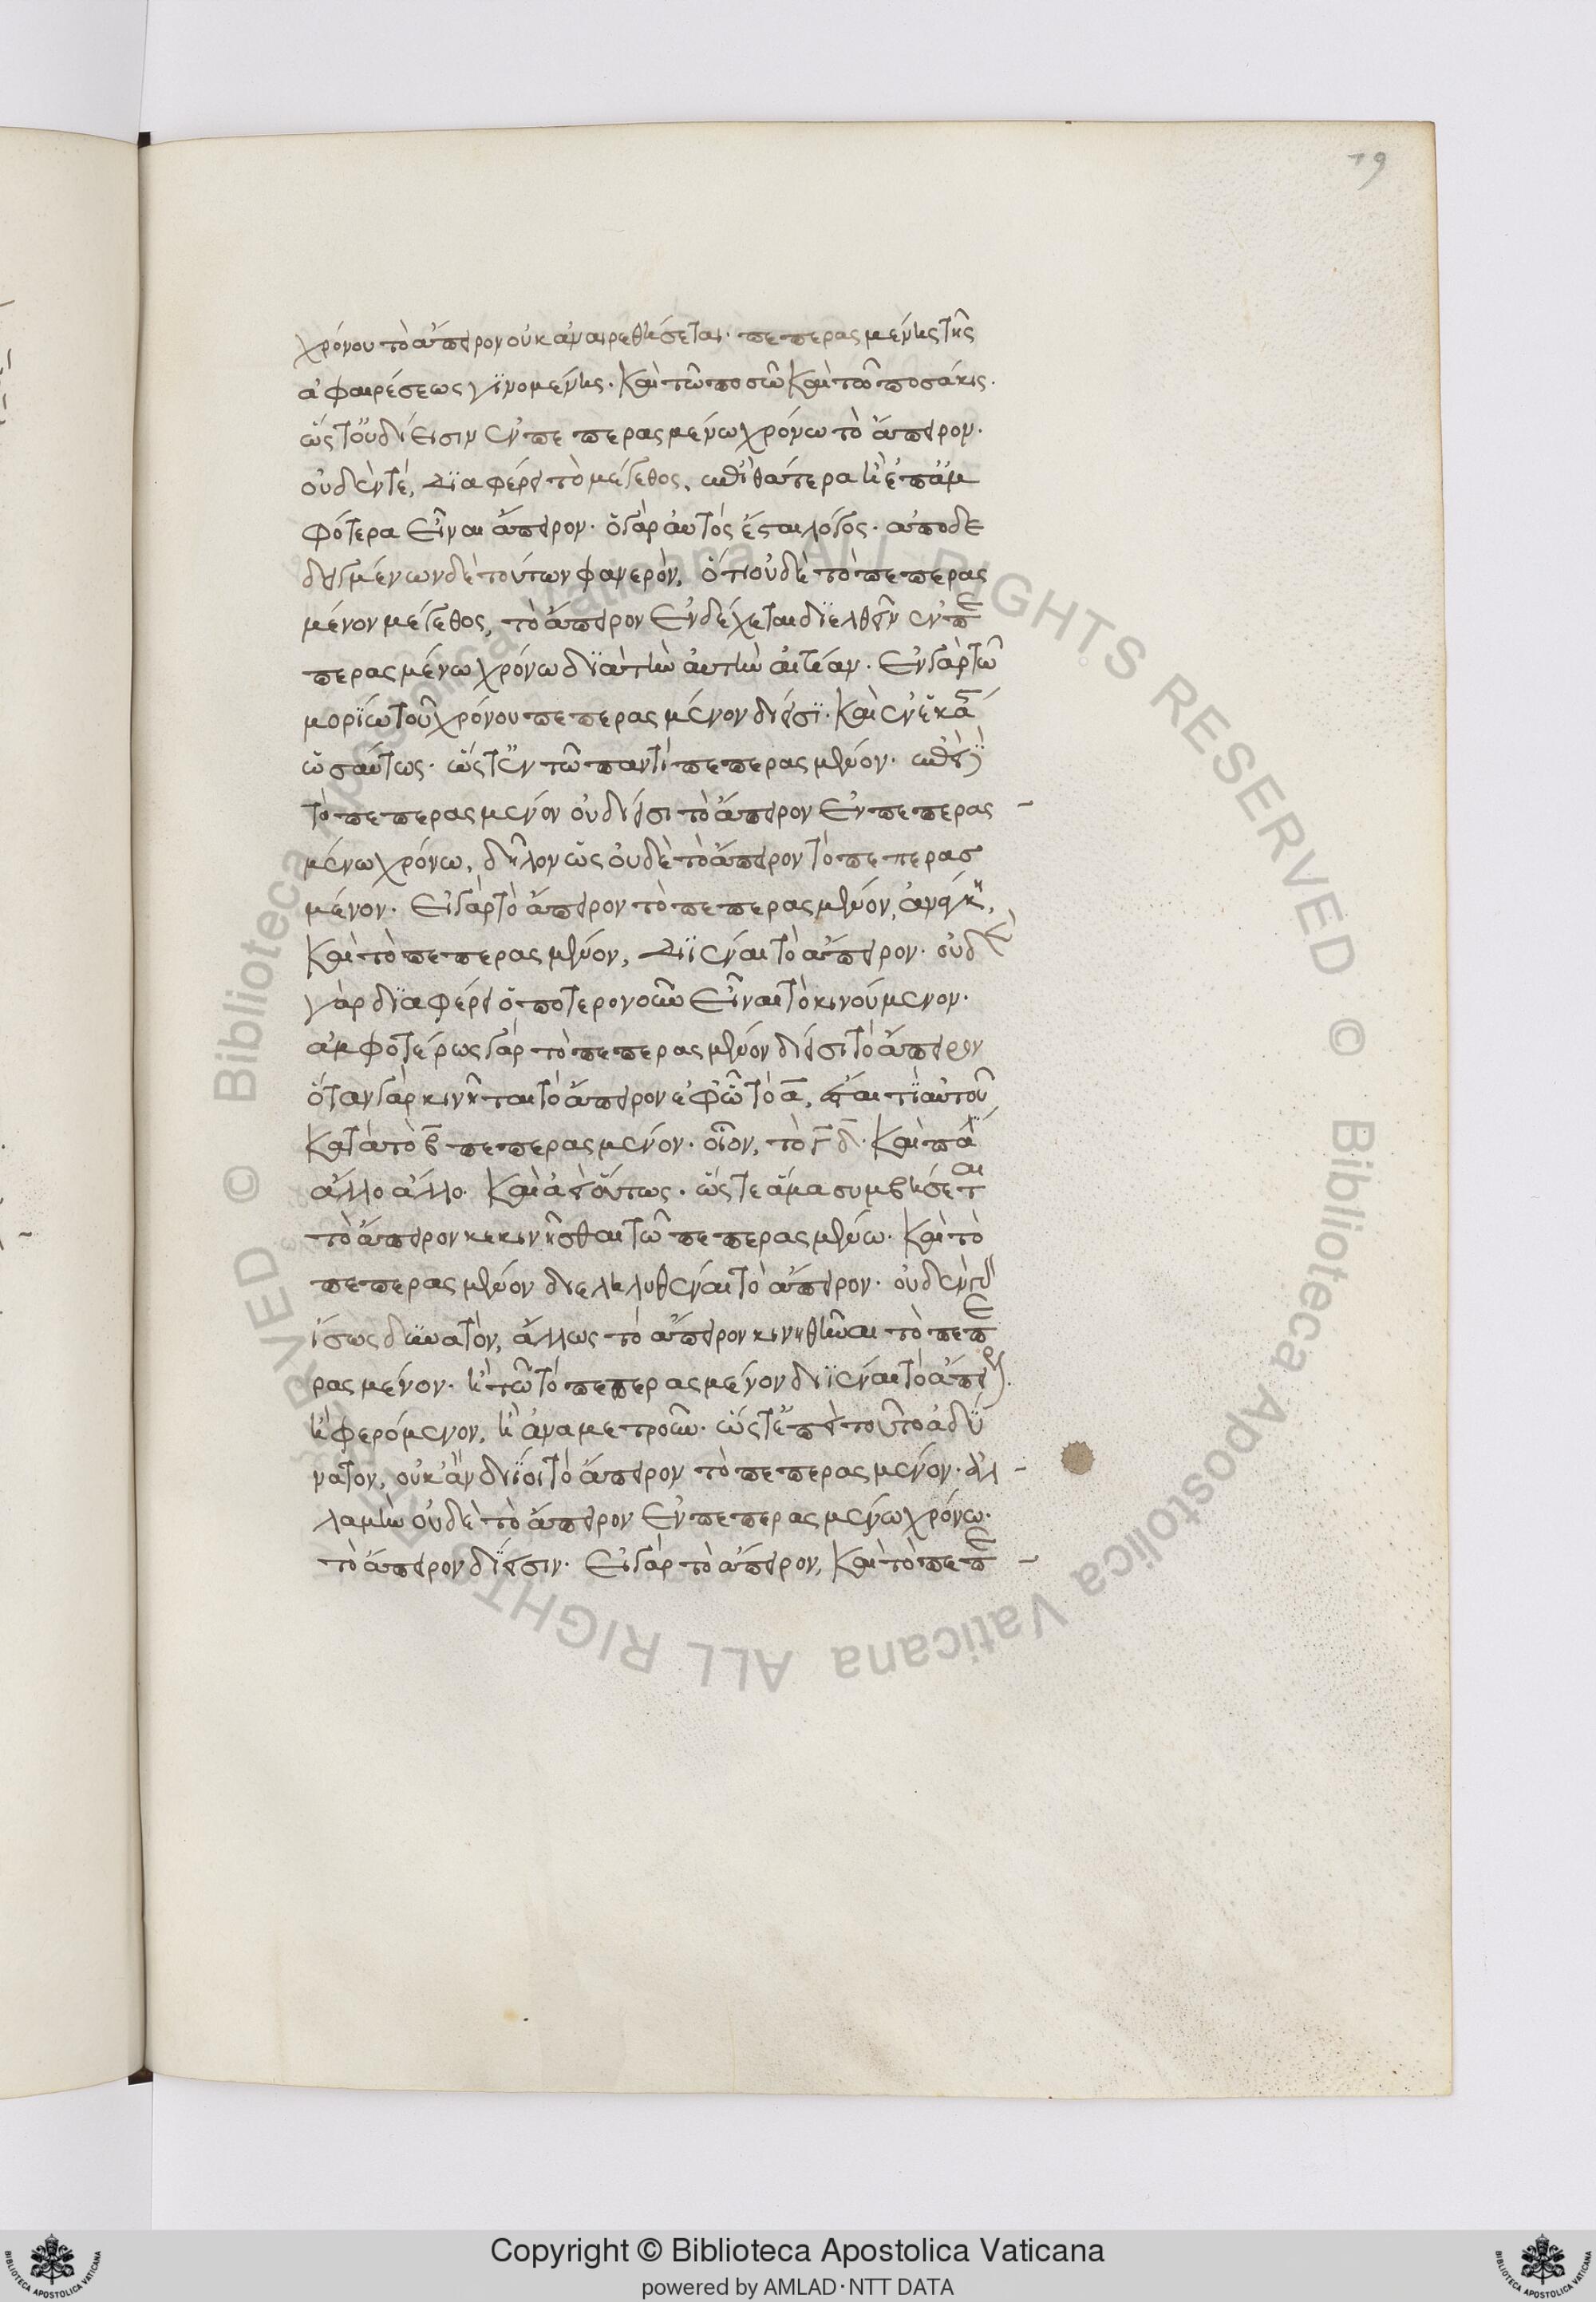 79
χρόνου τὸ ἄπειρον οὐκ ἀναιρεθήσεται· πεπερασμένης τῆς
ἀφαιρέσεως γινομένης· καὶ τῶ ποσῶ καὶ τῶ ποσάκις·
ὥστ' οὐ δίεισιν ἐν πεπερασμένω χρόνω τὸ ἄπειρον·
οὐδέν τε, διαφέρει τὸ μέγεθος, ἐπὶ θάτερα ἢ ἐπ' ἄμ
φότερα εἶναι ἄπειρον· ὁ γὰρ αὐτὸς ἔσται λόγος· ἀποδε
δειγμένων δὲ τούτων φανερὸν, ὅτι οὐδὲ τὸ πεπερασ
μένον μέγεθος, τὸ ἄπειρον ἐνδέχεται διελθεῖν ἐν πε
περασμένω χρόνω διὰ τὴν αὐτὴν αἰτίαν· ἐν γὰρ τῶ
μορίω τοῦ χρόνου πεπερασμένον δίεισι· καὶ ἐν ἑκά
ὡσαύτως· ὥστ' ἐν τῶ παντὶ πεπερασμένον· ἐπεὶ
τὸ πεπερασμένον οὐ δίεισι τὸ ἄπειρον ἐν πεπερασ
μένω χρόνω, δῆλον ὡς οὐδὲ τὸ ἄπειρον τὸ πεπερασ
μένον· εἰ γὰρ τὸ ἄπειρον τὸ πεπερασμένον, ἀνάγκη,
καὶ τὸ πεπερασμένον, διιέναι τὸ ἄπειρον· οὐδὲ
γὰρ διαφέρει ὁποτερονοῦν εἶναι τὸ κινούμενον·
ἀμφοτέρως γὰρ τὸ πεπερασμένον δίεισι τὸ ἄπειρον
ὅταν γὰρ κινῆται τὸ ἄπειρον ἐφ' ὧ τὸ α, ἔσται τι αὐτοῦ
κατὰ τὸ β πεπερασμένον· οἷον, τὸ γδ· καὶ πά
ἄλλο ἄλλο· καὶ ἀεὶ οὕτως· ὥστε ἅμα συμβήσεται
τὸ ἄπειρον κεκινῆσθαι τῶ πεπερασμένω· καὶ τὸ
πεπερασμένον διεληλυθέναι τὸ ἄπειρον· οὐδὲ γὰρ
ἴσως δυνατὸν, ἄλλως τὸ ἄπειρον κινηθῆναι τὸ πεπε
ρασμένον· ἢ τῶ τὸ πεπερασμένον διιέναι τὸ ἄπειρον·
ἢ φερόμενον, ἢ ἀναμετροῦν· ὥστ' ἐπεὶ τοῦτο ἀδύ
νατον, οὐκ ἂν διΐοι τὸ ἄπειρον τὸ πεπερασμένον· ἀλ
λὰ μὴν οὐδὲ τὸ ἄπειρον ἐν πεπερασμένω χρόνω·
τὸ ἄπειρον δίεισιν· εἰ γὰρ τὸ ἄπειρον, καὶ τὸ πεπε
Copyright © Biblioteca Apostolica Vaticana
powered by AMLAD·NTT DATA
© Biblioteca Apostolica Vaticana ALL RIGHTS RESERVED © Biblioteca Apostolica Vaticana ALL RIGHTS RESERVED